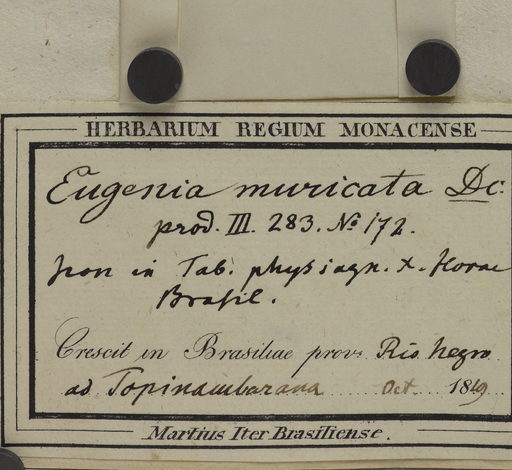 HERBARIUM REGIUM MONACENSE
Eugenia muricata Dc.
prod. III. 283. No 172.
Icon in Tab. physiogn. X. florae
Brasil.
Crescit in Brasiliae prov. Rio Negro
ad Topinambarana Oct. 1819
Martius Iter Brasiliense.